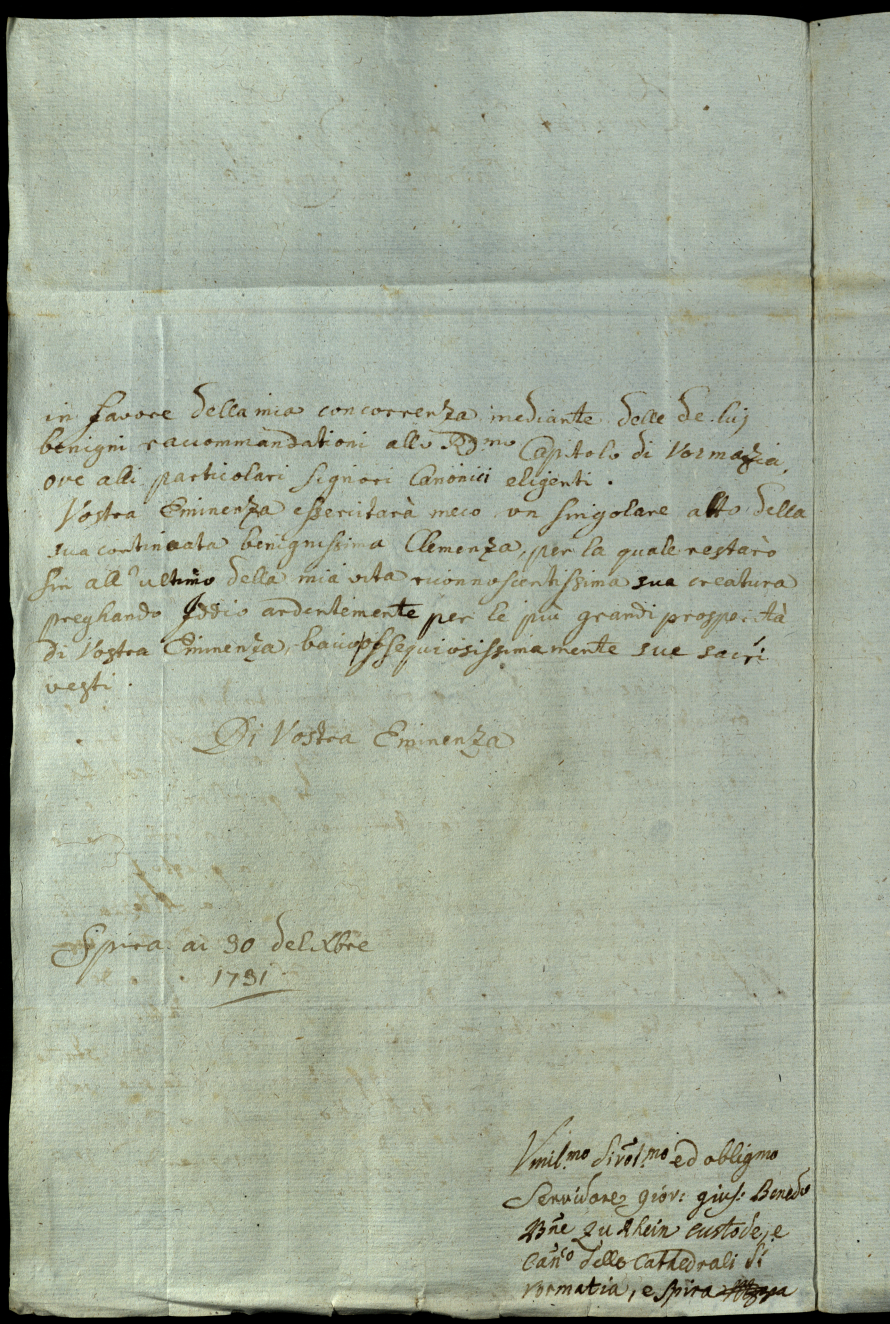 in favore della mia concorrenza mediante delle de luj
benigni raccommandationi allo Rdmo Capitolo di Vormazia,
ove alli particolari signori Canonici eligenti.
Vostra Eminenza essercitarà meco vn singolare atto della
sua continuata benignissima Clemenza, per la quale restarò
sin all'ultimo della mia vita riconnoscentissima sua creatura
preghando Iddio ardentemente per le più grandi prosperità
di Vostra Eminenza, bacio ossequiosissimamente sue sacri
vesti.
Di Vostra Eminenza
Spira ai 30 del Xbre
1731
Vmil.mo divot.mo ed obligmo
Servidore giov: gius: Bened
Bne Zu Rhein custode, e
Can.co delle Cathedrali di
Vormatia, e Spira